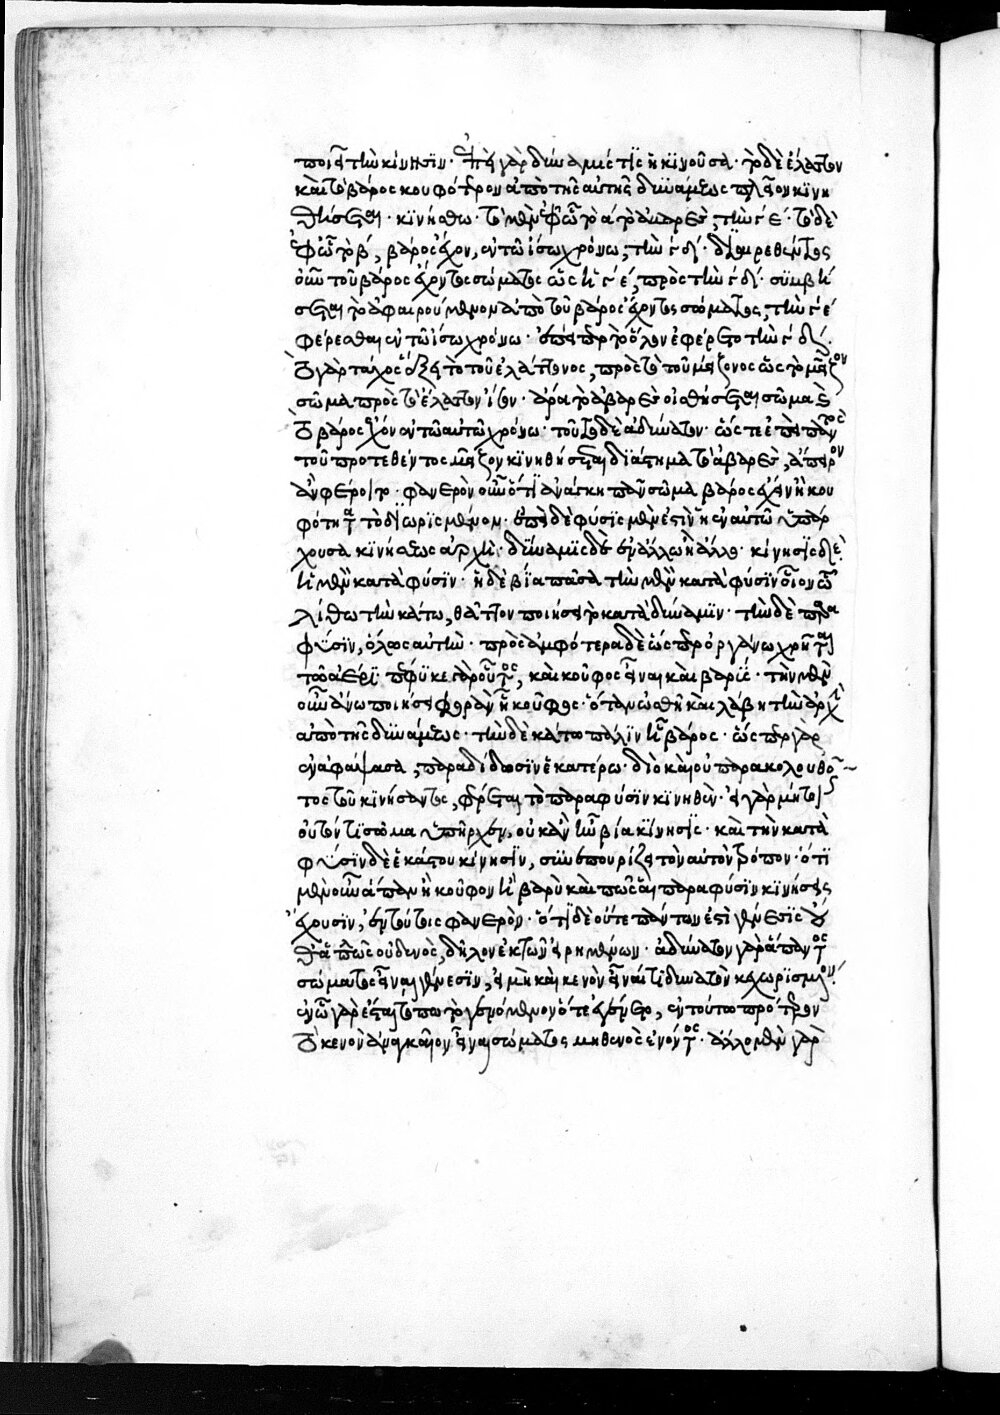 ποιεῖ τὴν κίνησιν· ἐπεὶ γὰρ δύναμίς τις ἡ κινοῦσα· τὸ δὲ ἔλαττον
καὶ τὸ βάρος κουφότερον ἀπὸ τῆς αὐτῆς δυνάμεως πλεῖον κινη
θήσεται· κινήσθω· τὸ μὲν ἐφ' ὧ τὸ α τὸ ἀβαρὲς, τὴν γ ε· τὸ δὲ
ἐφ' ὧ τὸ β, βάρος ἔχον, ἐν τῶ ἴσω χρόνω, τὴν γ δ· διαιρεθέντος
οὖν τοῦ βάρος ἔχοντος σώματος ὡς ἡ γ ε, πρὸς τὴν γ δ· συμβή
σεται τὸ ἀφαιρούμενον ἀπὸ τοῦ βάρος ἔχοντος σώματος, τὴν γ ε
φέρεσθαι ἐν τῶ ἴσω χρόνω· ἐπείπερ τὸ ὅλον ἐφέρετο τὴν γ δ·
τὸ γὰρ τάχος ἕξει τὸ τοῦ ἐλάττονος, πρὸς τὸ τοῦ μείζονος ὡς τὸ μεῖζον
σῶμα πρὸς τὸ ἔλαττον ἴσον· ἄρα τὸ ἀβαρὲς οἰσθήσεται σῶμα καὶ
τὸ βάρος ἔχον ἐν τῶ αὐτῶ χρόνω· τοῦτο δὲ ἀδύνατον· ὥστε ἐπεὶ παντὸς
τοῦ προτεθέντος μεῖζον κινηθήσεται διάστημα τὸ ἀβαρὲς, ἄπειρον
ἂν φέροιτο· φανερὸν οὖν ὅτι ἀνάγκη πᾶν σῶμα βάρος ἔχειν ἢ κου
φότητα τὸ διωρισμένον· ἐπεὶ δὲ φύσις μέν ἐστιν ἡ ἐν αὐτῶ ὑπάρ
χουσα κινήσεως ἀρχὴ· δύναμις δὲ ἡ ἐν ἄλλω ἢ ἄλλο· κίνησις δὲ
ἡ μὲν κατὰ φύσιν· ἡ δὲ βία πᾶσα τὴν μὲν κατὰ φύσιν οἷον τῶ
λίθω τὴν κάτω, θᾶττον ποιήσει τὸ κατὰ δύναμιν· τὴν δὲ παρὰ
φύσιν, ὅλως αὐτὴν· πρὸς ἀμφότερα δὲ ὥσπερ ὀργάνω χρῆται
τῶ ἀέρι πέφυκε γὰρ οὗτος, καὶ κοῦφος εἶναι καὶ βαρύς· τὴν μὲν
οὖν ἄνω ποιήσει φορὰν ᾗ κοῦφος· ὅταν ὠσθῆ καὶ λάβη τὴν ἀρχὴν
ἀπὸ τῆς δυνάμεως· τὴν δὲ κάτω πάλιν ᾗ βάρος· ὥσπερ γὰρ
ἐναφάψασα, παραδίδωσιν ἑκατέρω· διὸ καὶ οὐ παρακολουθοῦν
τος τοῦ κινήσαντος, φέρεται τὸ παρὰ φύσιν κινηθέν· εἰ γὰρ μὴ τοι
οῦτόν τι σῶμα ὑπῆρχεν, οὐκ ἂν ἦν βία κίνησις· καὶ τὴν κατὰ
φύσιν δὲ ἑκάστου κίνησιν, συνεπουρίζει τὸν αὐτὸν τρόπον· ὅτι
μὲν οὖν ἅπαν ἢ κοῦφον ἢ βαρὺ καὶ πῶς αἱ παρὰ φύσιν κινήσεις
ἔχουσιν, ἐν τούτοις φανερὸν· ὅτι δὲ οὔτε πάντων ἐστὶ γένεσις οὔ
θ' ἁπλῶς οὐδενὸς, δῆλον ἐκ τῶν εἰρημένων· ἀδύνατον γὰρ ἅπαντος
σώματος εἶναι γένεσιν, εἰ μὴ καὶ κενὸν εἶναί τι δυνατὸν κεχωρισμένον·
ἐν ὧ γὰρ ἔσται τόπω τὸ γενόμενον ὅτε ἐγένετο, ἐν τούτω πρότερον
τὸ κενὸν ἀναγκαῖον εἶναι σώματος μηθενὸς ἐνόντος· ἄλλο μὲν γὰρ